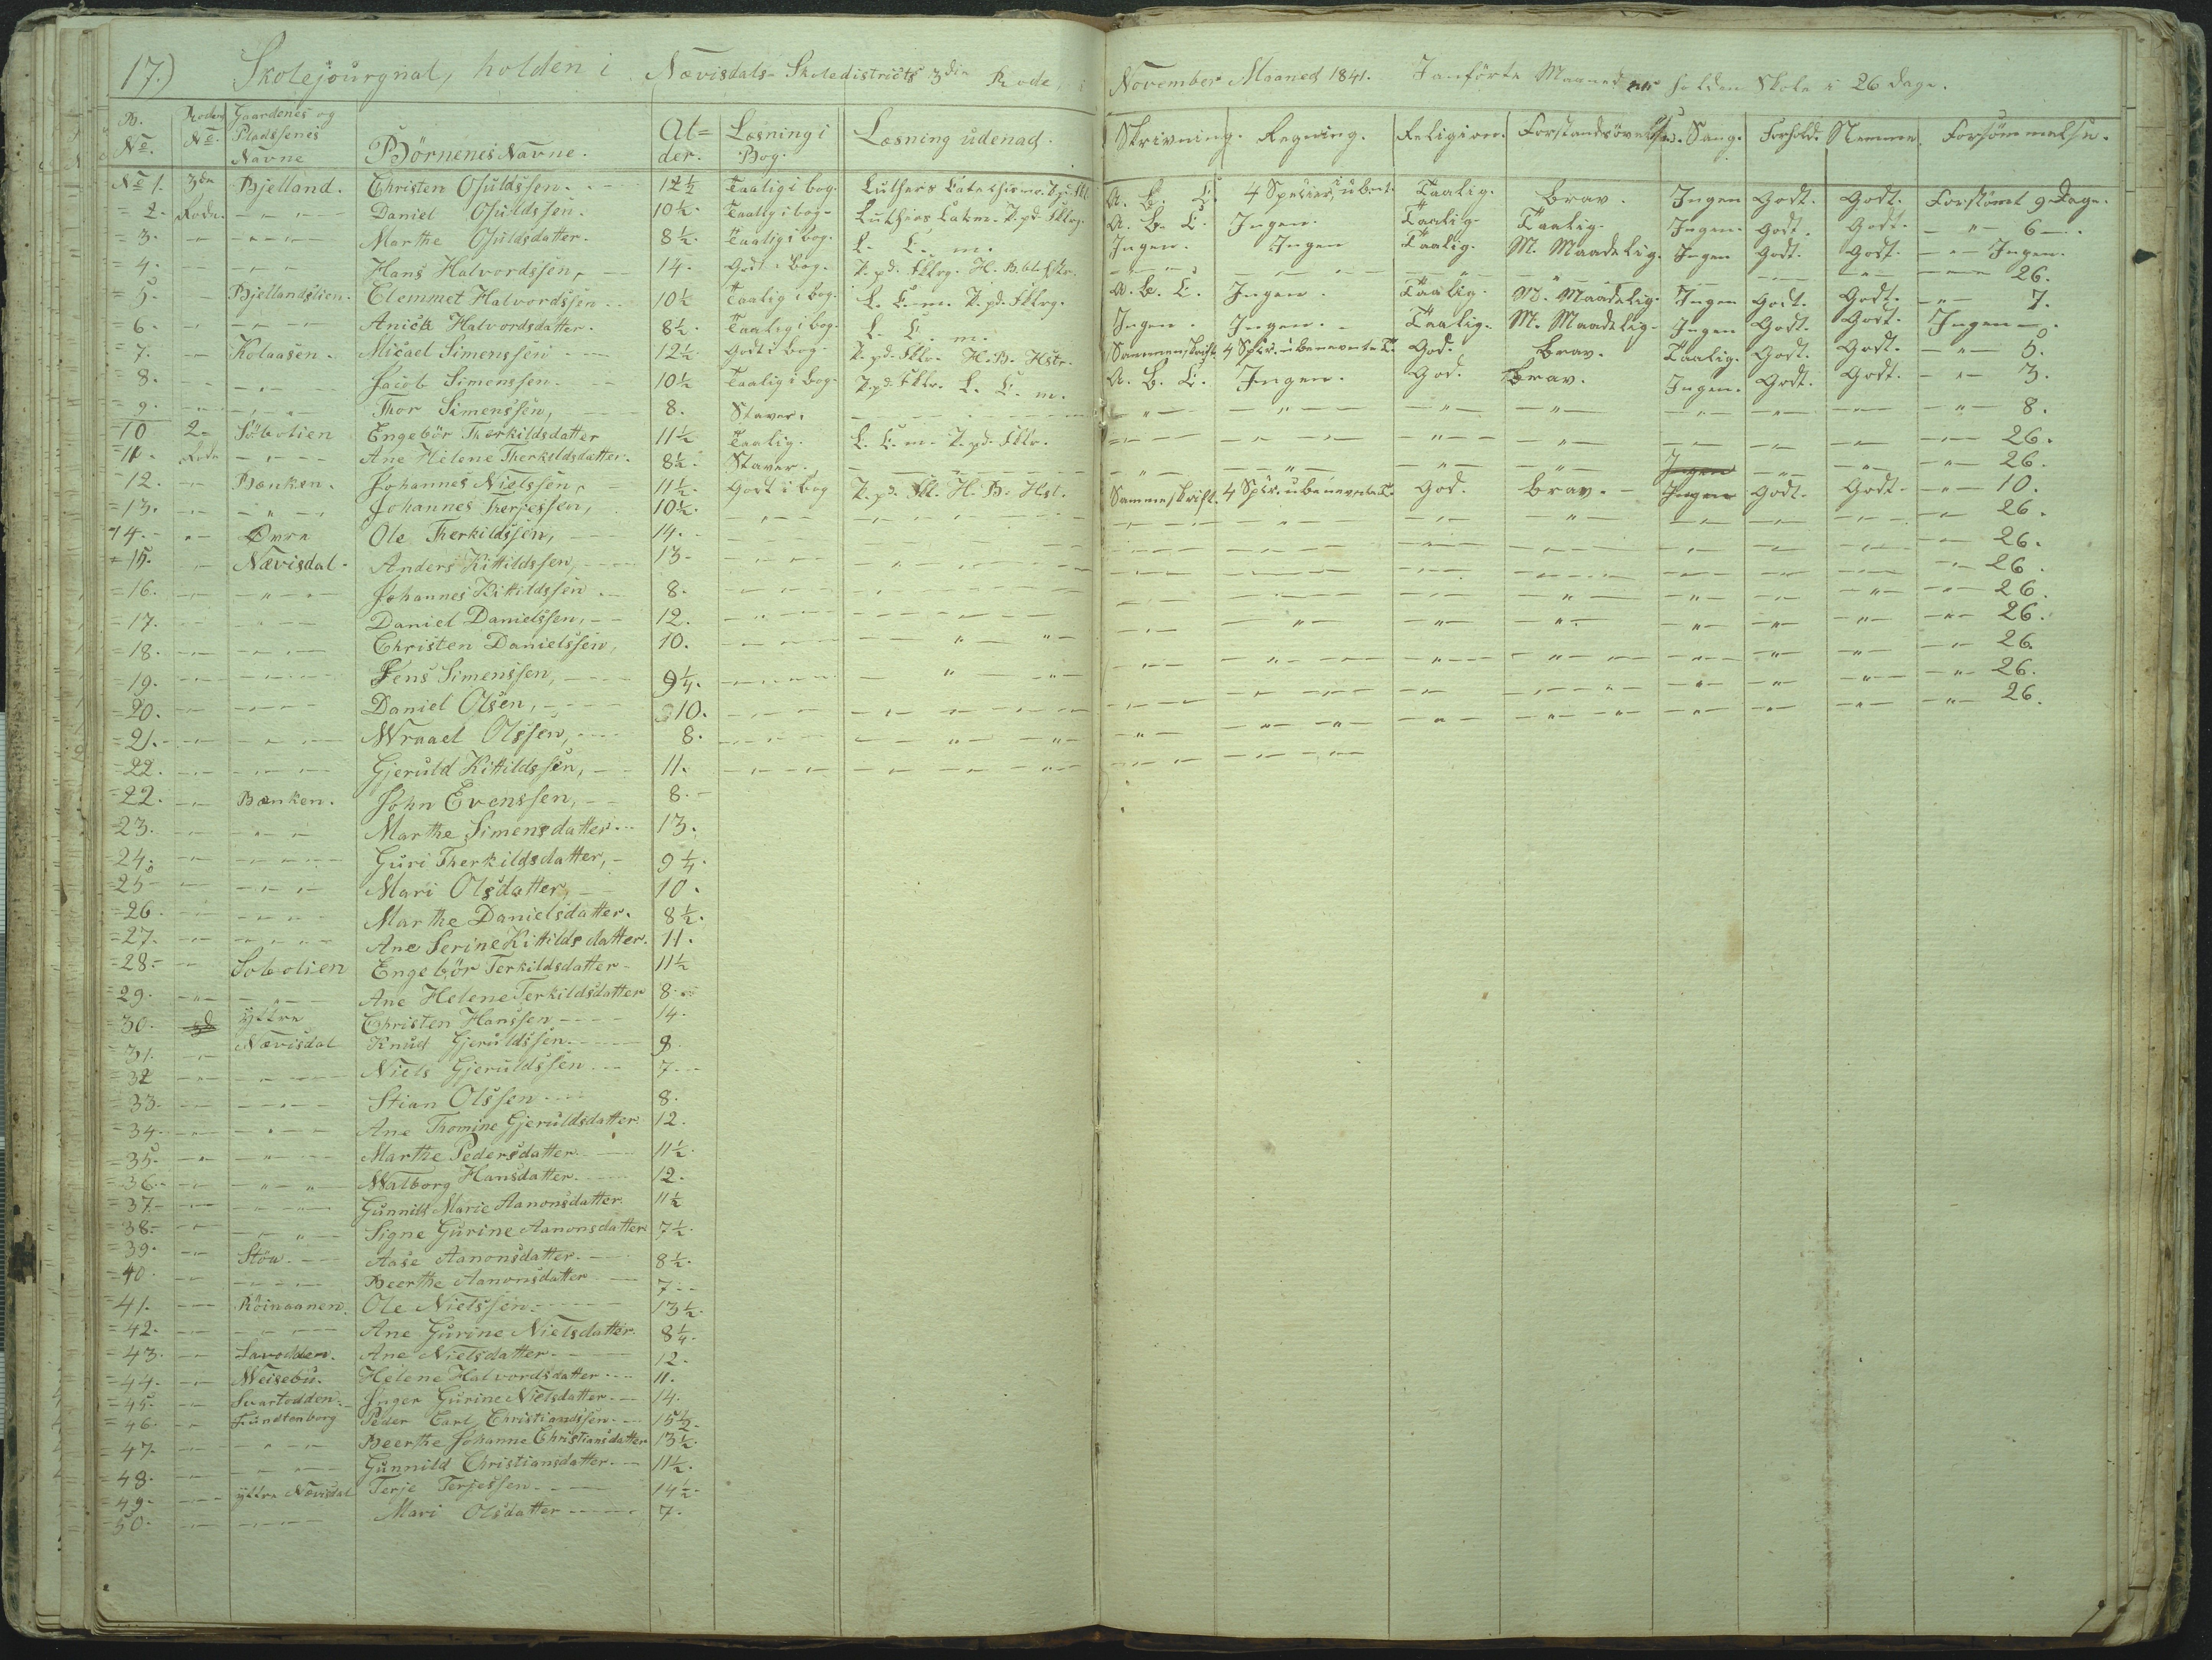 17.) Skolejournal, holden i Nævisdals- Skoledistricts 3die Rode, i November Maaned 1841. Ianførte Maaned er holden Skole i 26 Dage.
B. No. Rodens No. Gaardenes og Pladssenes Navne Børnenes Navne. Al=der. Læsning i Bog. Læsning udenad. Skrivning. Regning. Religion. Forstandsøvelse. Sang. Forhold. Nemme. Forsømmelse.
No 1. 3die Bjelland. Christen Osuldssen. 12½ Taalig i bog. Luthers Catechismus. A. B. C. 4 Specier, i ubent. Taalig. brav. Ingen Godt. Godt. Forsømt 9 Dage.
= 2. Rode. - - - Daniel Osuldssen. 10½. Taalig i bog. Luthers Catm. T. pd. Fklrg. A. B. C. Ingen. Taalig. Taalig. Ingen. Godt. Godt. - " - 6 -.
= 3. - - - - Marthe Osuldsdatter. 8½. Taalig i bog. L. C. m. Ingen. Ingen Taalig. M. Maadelig. Ingen Godt. Godt. - " - Ingen.
= 4. - - - - Hans Halvordssen, 14. Godt i Bog. T. pd. Fklrg. H. B. - - - - - - - - 26.
= 5. - Bjellandslien. Clemmet Halvordssen 10½ Taalig i bog. L. C. m. T. pd. Fklrg. A. B. C. Ingen. Taalig. M. Maadelig. Ingen Godt. Godt. - " - 7.
= 6. - - - - Anick Halvordsdatter. 8½. Taalig i bog. L. C. m. Ingen. Ingen. Taalig. M. Maadelig. Ingen Godt. Godt. Ingen -.
= 7. - Kolaasen. Micael Simenssen 12½. Godt i Bog. T. pd. Fklr. H. B. Hstr. Sammenskrift. 4 Spcr. ubenevnte T. God. brav. Taalig. Godt. Godt. - " - 5.
= 8. - - - - Jacob Simenssen. 10½ Taalig i bog. T. pd. Fklr. L. C. m. A. B. C. Ingen. God. Brav. Ingen. Godt. Godt. - " - 3.
= 9. - - - - Thor Simenssen, 8. Staver. - - - - - - - - - 8.
= 10 2- Söbolien Engebör Therkildsdatter 11½ Taalig. L. C. m. T. pd. Fklr. - - - - - - - 26.
= 11. Rode - - - Ane Helene Therkildsdatter. 8½. Staver. - - - - - Ingen - - - 26.
= 12. - Bænken. Johannes Nielssen, 11½. Godt i bog T. pd. Fkl. H. B. Hst. Sammeskrift. 4 Spcr. ubenevnte T. God. brav. - Ingen Godt. Godt - " - 10.
= 13. - - - - Johannes Therjessen, 10½. - - - - - - - - - - 26.
= 14. - Øvre Ole Therkildssen, 14. - - - - - - - - - - 26.
= 15. - Nævisdal. Anders Kittildssen, 13. - - - - - - - - - - 26.
= 16. - - - - Johannes Kittildssen 8. - - - - - - - - - - 26.
= 17. - - - - Daniel Danielssen, 12. - - - - - - - - - - 26.
= 18. - - - - Christen Danielssen, 10. - - - - - - - - - - 26.
= 19. - - - - Jens Simenssen, 9¼. - - - - - - - - - - 26.
= 20. - - - - Daniel Olsen, 10. - - - - - - - - - - 26.
= 21. - - - - Wraael Olssen, 8. - - - - -
= 22. - - - - Gjeruld Kittildssen, 11. - - - - -
= 22. - Bænken. John Evenssen, 8.
= 23. - - - - Marthe Simensdatter 13.
= 24. - - - - Guri Therkildsdatter, 9¼.
= 25 - - - - Mari Olsdatter, 10.
= 26. - - - - Marthe Danielsdatter. 8½.
= 27. - - - - Ane Serine Kittildsdatter. 11.
= 28. - Sobolien Engebör Terkildsdatter 11½
= 29. - - - - Ane Helene Terkildsdatter 8.
= 30. 3d Yttre Christen Hanssen 14.
= 31. - Nævisdal Knud Gjeruldssen. 9
= 32 - - - - Niels Gjeruldssen 7.
= 33. - - - - Stian Olssen 8.
= 34. - - - - Ane Thomine Gjeruldsdatter 12.
= 35. - - - - Marthe Pedersdatter. 11½.
= 36. - - - - Walborg Hansdatter. 12.
= 37. - - - - Gunnild Marie Aanonsdatter. 11½
= 38. - - - - Signe Gurine Aanonsdatter 7½.
= 39. - Stöa. Aase Aanonsdatter. 8½.
= 40. - - - - Beerthe Aanonsdatter 7.
= 41. - Röinaanen. Ole Nielssen. 13½.
= 42. - - - - Ane Gurine Nielsdatter. 8¼.
= 43. - Lavodden. Ane Nielsdatter. 12.
= 44. - Weisebu. Helene Halvordsdatter 11.
= 45. - Svartodden. Inger Gurine Nielsdatter. 14.
= 46. - Fundtenborg Peder Carl Christianssen. 15½.
= 47. - - - - Beerthe Johanne Christiansdatter 13½.
= 48. - - - - Gunnild Christiansdatter. 11½.
= 49. - Yttre Nævisdal Terje Terjessen 14½.
= 50. - - - - Mari Olsdatter 7.